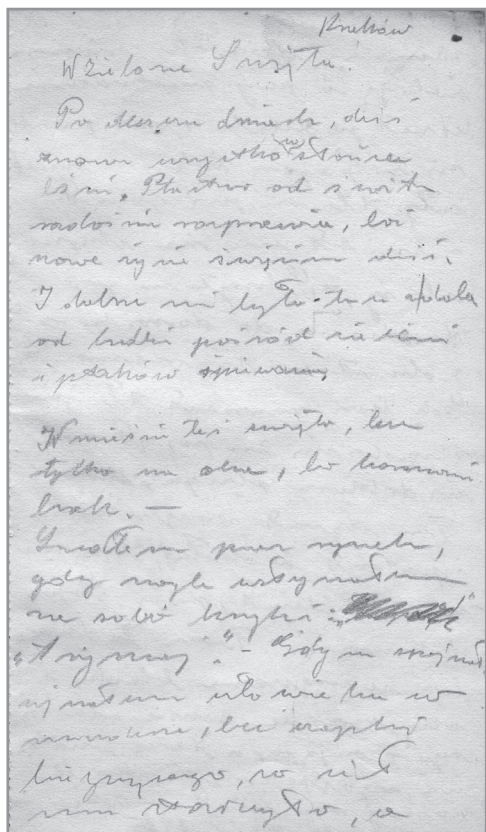 Kraków
W Zielone Święta.
Po deszczu dniach, dziś
znowu wszystko w słońcu
lśni. Ptactwo od świtu
radośnie rozprawia, boć
nowe życie święcim dziś.
I dobrze mi było tu z dala
od ludzi pośród zieleni
i ptaków śpiewania
W mieście też święto, lecz
tylko na oko, bo harmonii
brak. —
Szedłem przez rynek,
gdy nagle usłyszałem
za sobą krzyk:
"Trzymaj!" - Gdym spojrzał
ujrzałem człowieka w
bez czapki
co sił
mu starczyło, a